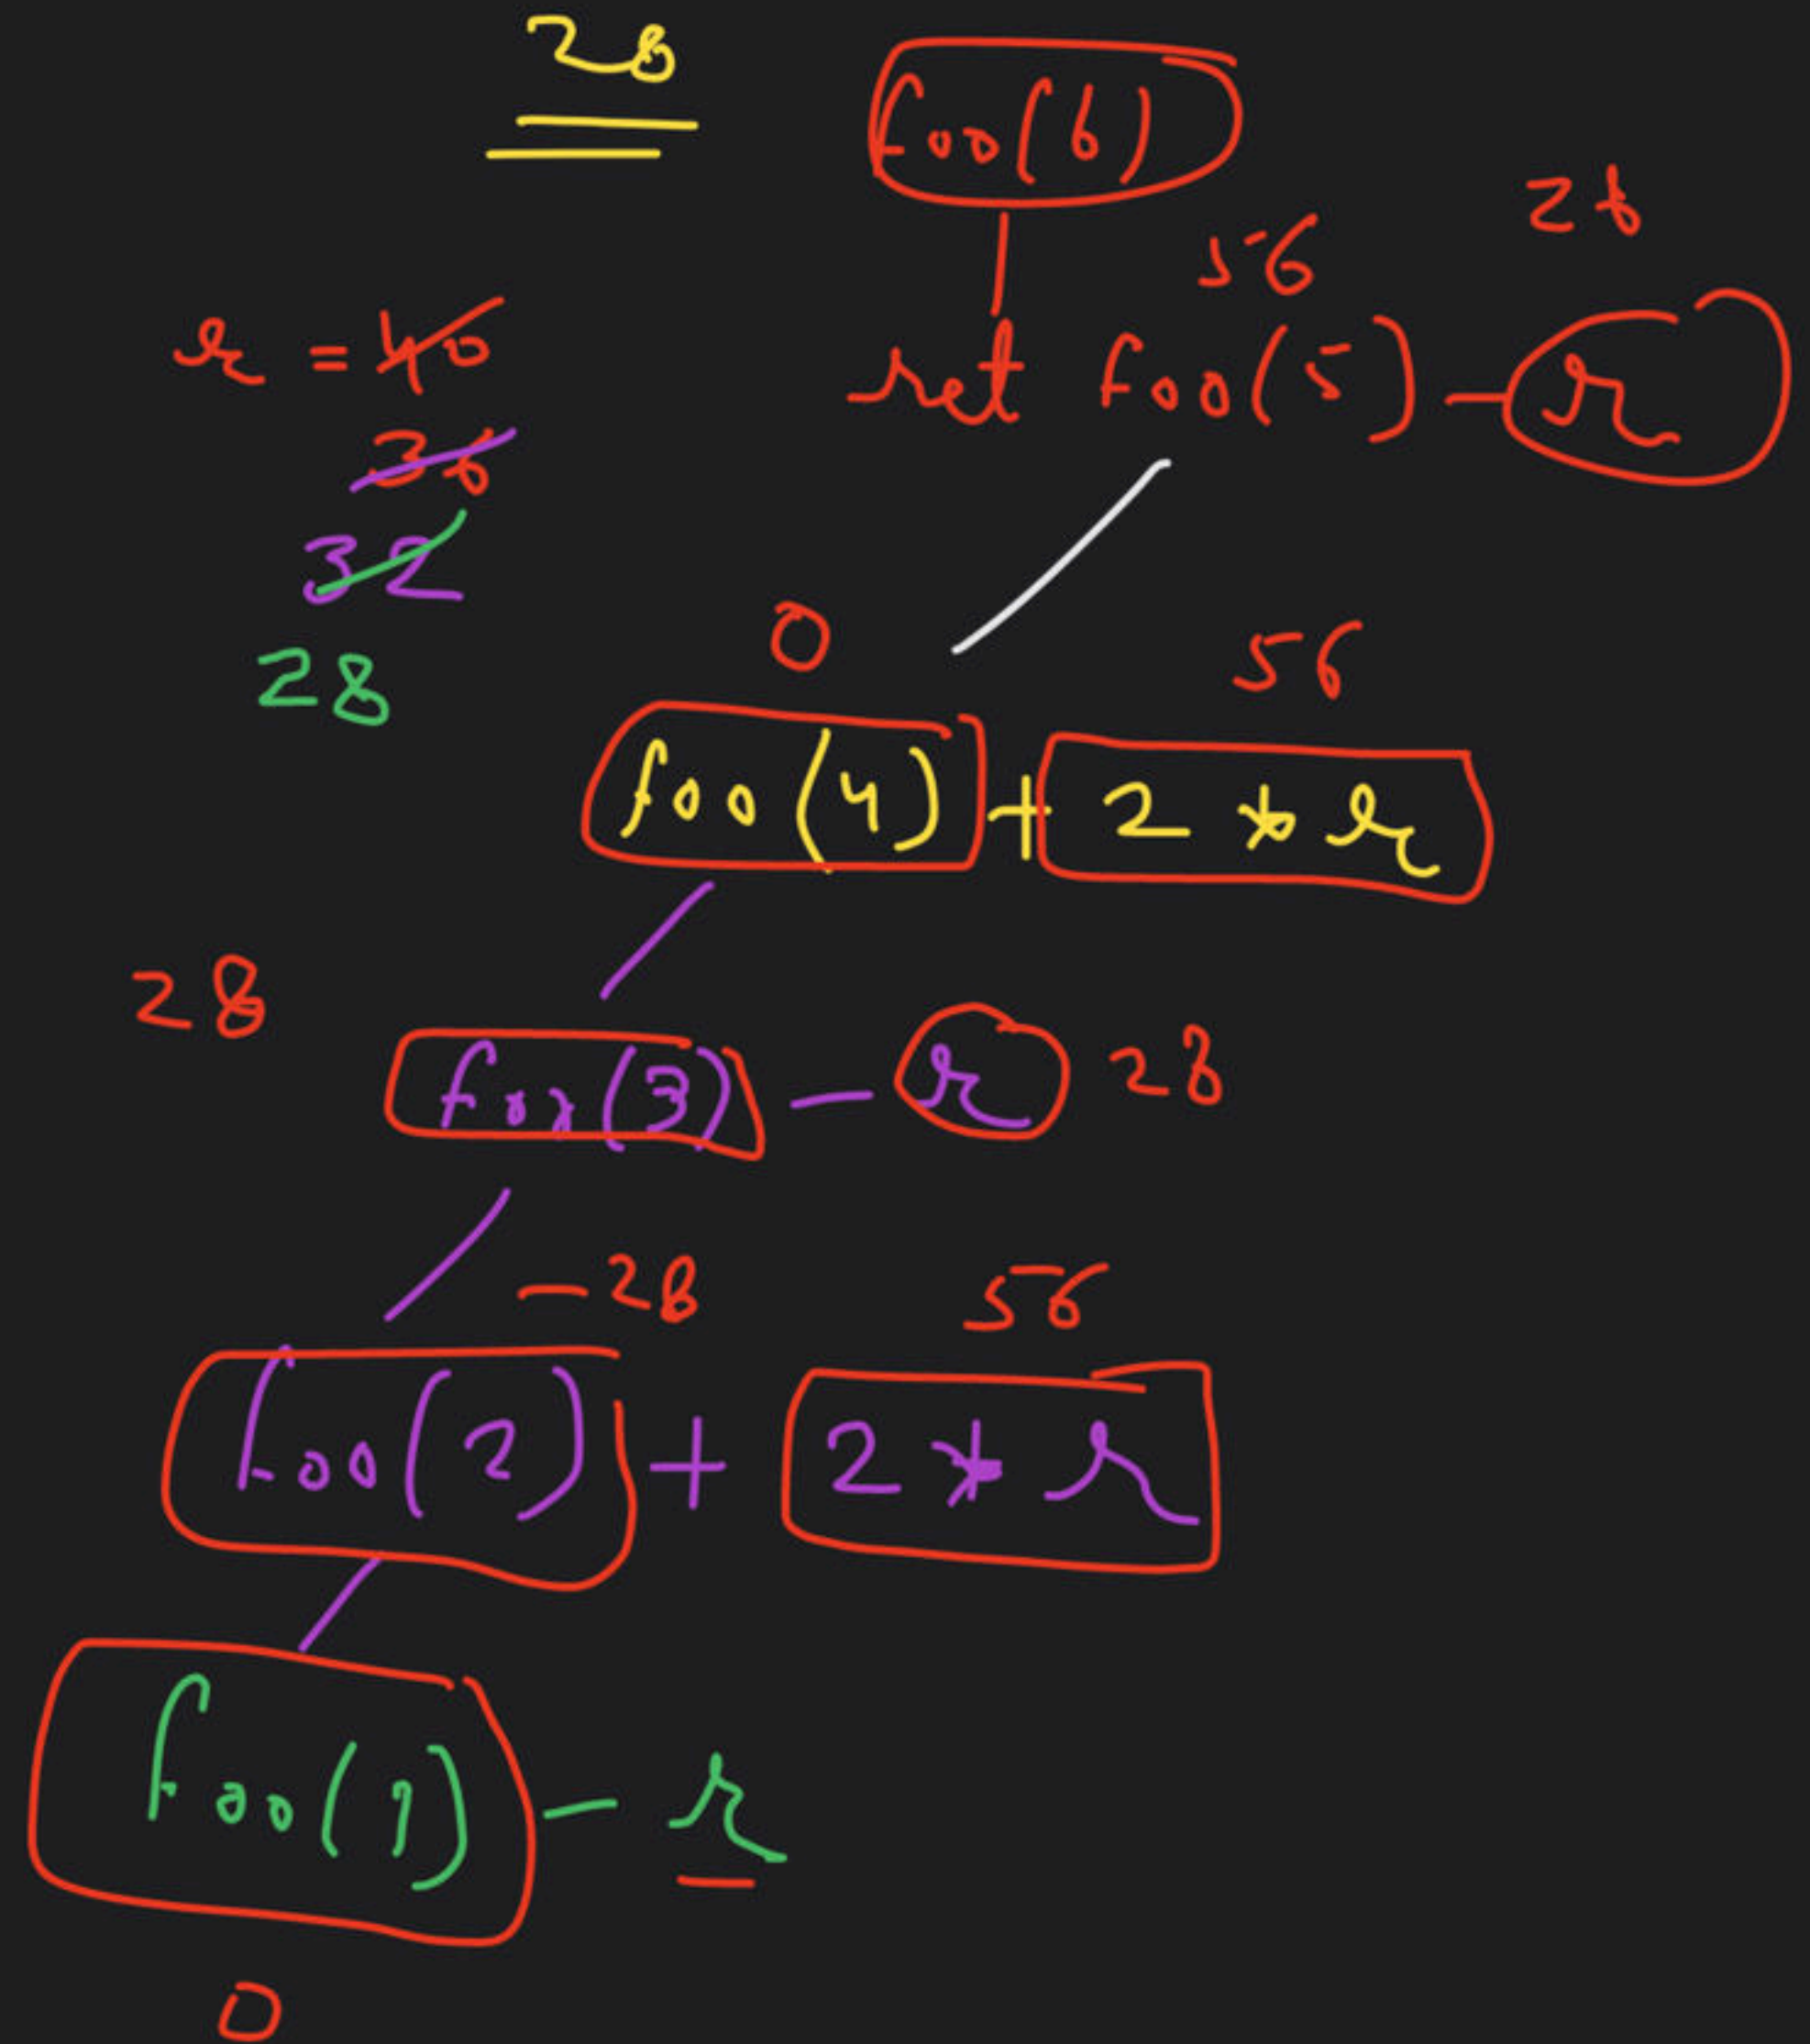 28
foo(6)
56
28
r = 40
ret foo(5) - r
36
32
28
0
56
foo(4) + 2 * r
28
foo(3) - r 28
-28
56
foo(2) + 2 * r
foo(1) - r
0